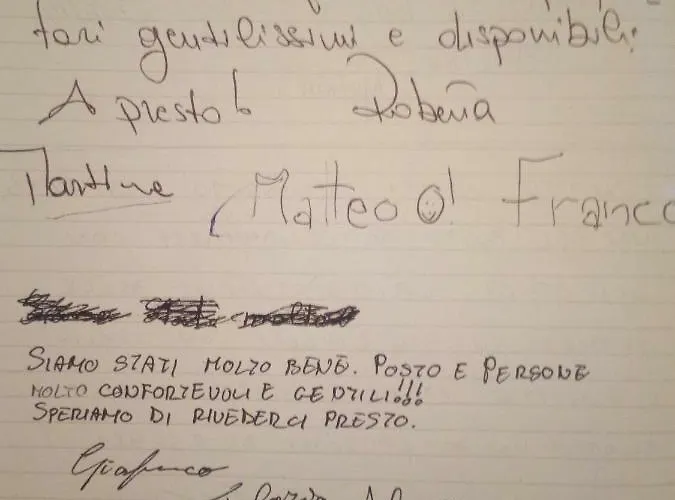 tori gentilissimi e disponibili!
A presto! Roberta
Martina Matteo! Franco
SIAMO STATI MOLTO BENE. POSTO E PERSONE
MOLTO CONFORTEVOLI E GENTILI!!!
SPERIAMO DI RIVEDERCI PRESTO.